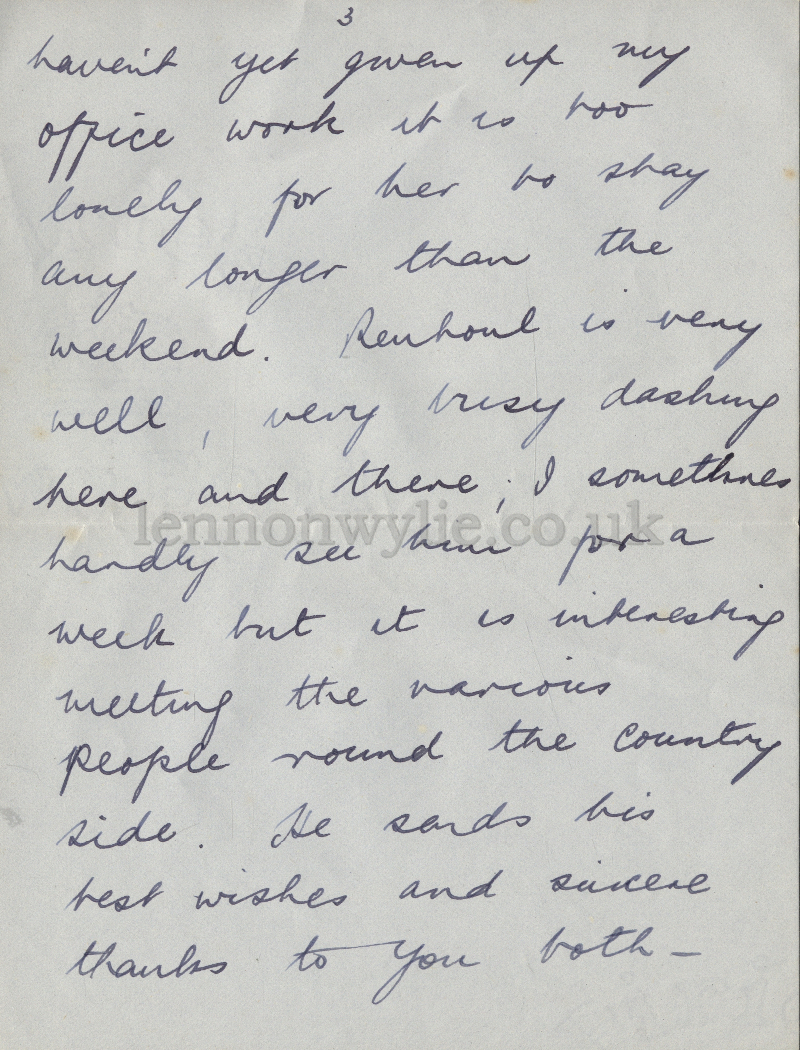 3
haven't yet given up my
office work it is too
lonely for her to stay
any longer than the
weekend. Renhoul is very
well, very busy dashing
here and there, I sometimes
lennonwylie.co.uk
hardly see him for a
week but it is interesting
meeting the various
people round the country
side. He sends his
best wishes and sincere
thanks to you both -